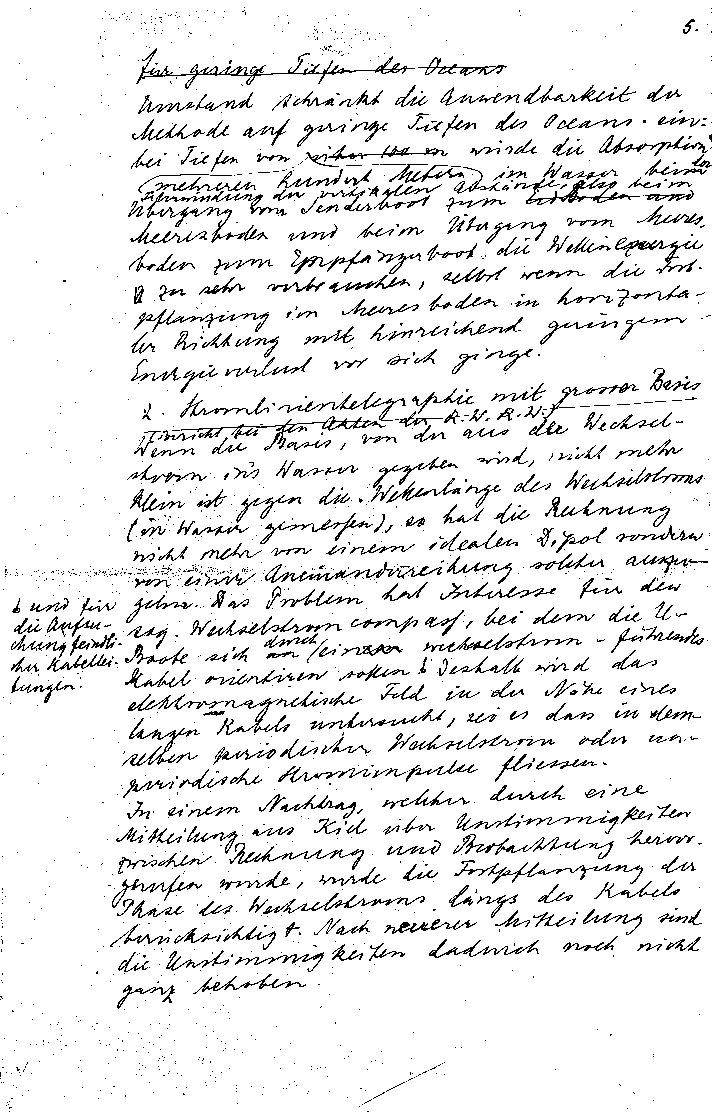 5.
für geringe Tiefen des Oceans
Umstand schränkt die Anwendbarkeit der
Methode auf geringe Tiefen des Oceans ein:
bei Tiefen von über 100 m würde die Absorption
mehreren hundert Metern im Wasser beim
Überwindung der vertikalen Abstände, also beim
Übergang vom Senderboot zum
Meeresboden und beim Übergang vom Meeres-
boden zum Empfängerboot die Wellenenergie
zu sehr verbrauchen, selbst wenn die Fort-
pflanzung im Meeresboden in horizonta-
ler Richtung mit hinreichend geringem
Energieverlust vor sich ginge.
2. Stromlinientelegraphie mit grosser Basis
(Bericht bei den Akten der K. W. K. W.)
Wenn die Basis, von der aus der Wechsel-
strom ins Wasser gegeben wird, nicht mehr
klein ist gegen die Wellenlänge des Wechselstroms
(in Wasser gemessen), so hat die Rechnung
nicht mehr von einem idealen Dipol sondern
von einer Aneinanderreihung solcher auszu-
gehn. Das Problem hat Interesse für den
sog. Wechselstromcompass, bei dem die U-
Boote sich durch ein wechselstrom-führendes
Kabel orientiren sollen ҍ Deshalb wird das
ҍ und für
die Aufsu-
chung feindli-
cher Kabellei-
tungen.
elektromagnetische Feld in der Nähe eines
langen Kabels untersucht, sei es dass in dem-
selben periodischer Wechselstrom oder un-
periodische Stromimpulse fliessen.
In einem Nachtrag, welcher durch eine
Mitteilung aus Kiel über Unstimmigkeiten
zwischen Rechnung und Beobachtung hervor-
gerufen wurde, wurde die Fortpflanzung der
Phase des Wechselstroms längs des Kabels
berücksichtigt. Nach neuerer Mitteilung sind
die Unstimmigkeiten dadurch noch nicht
ganz behoben.